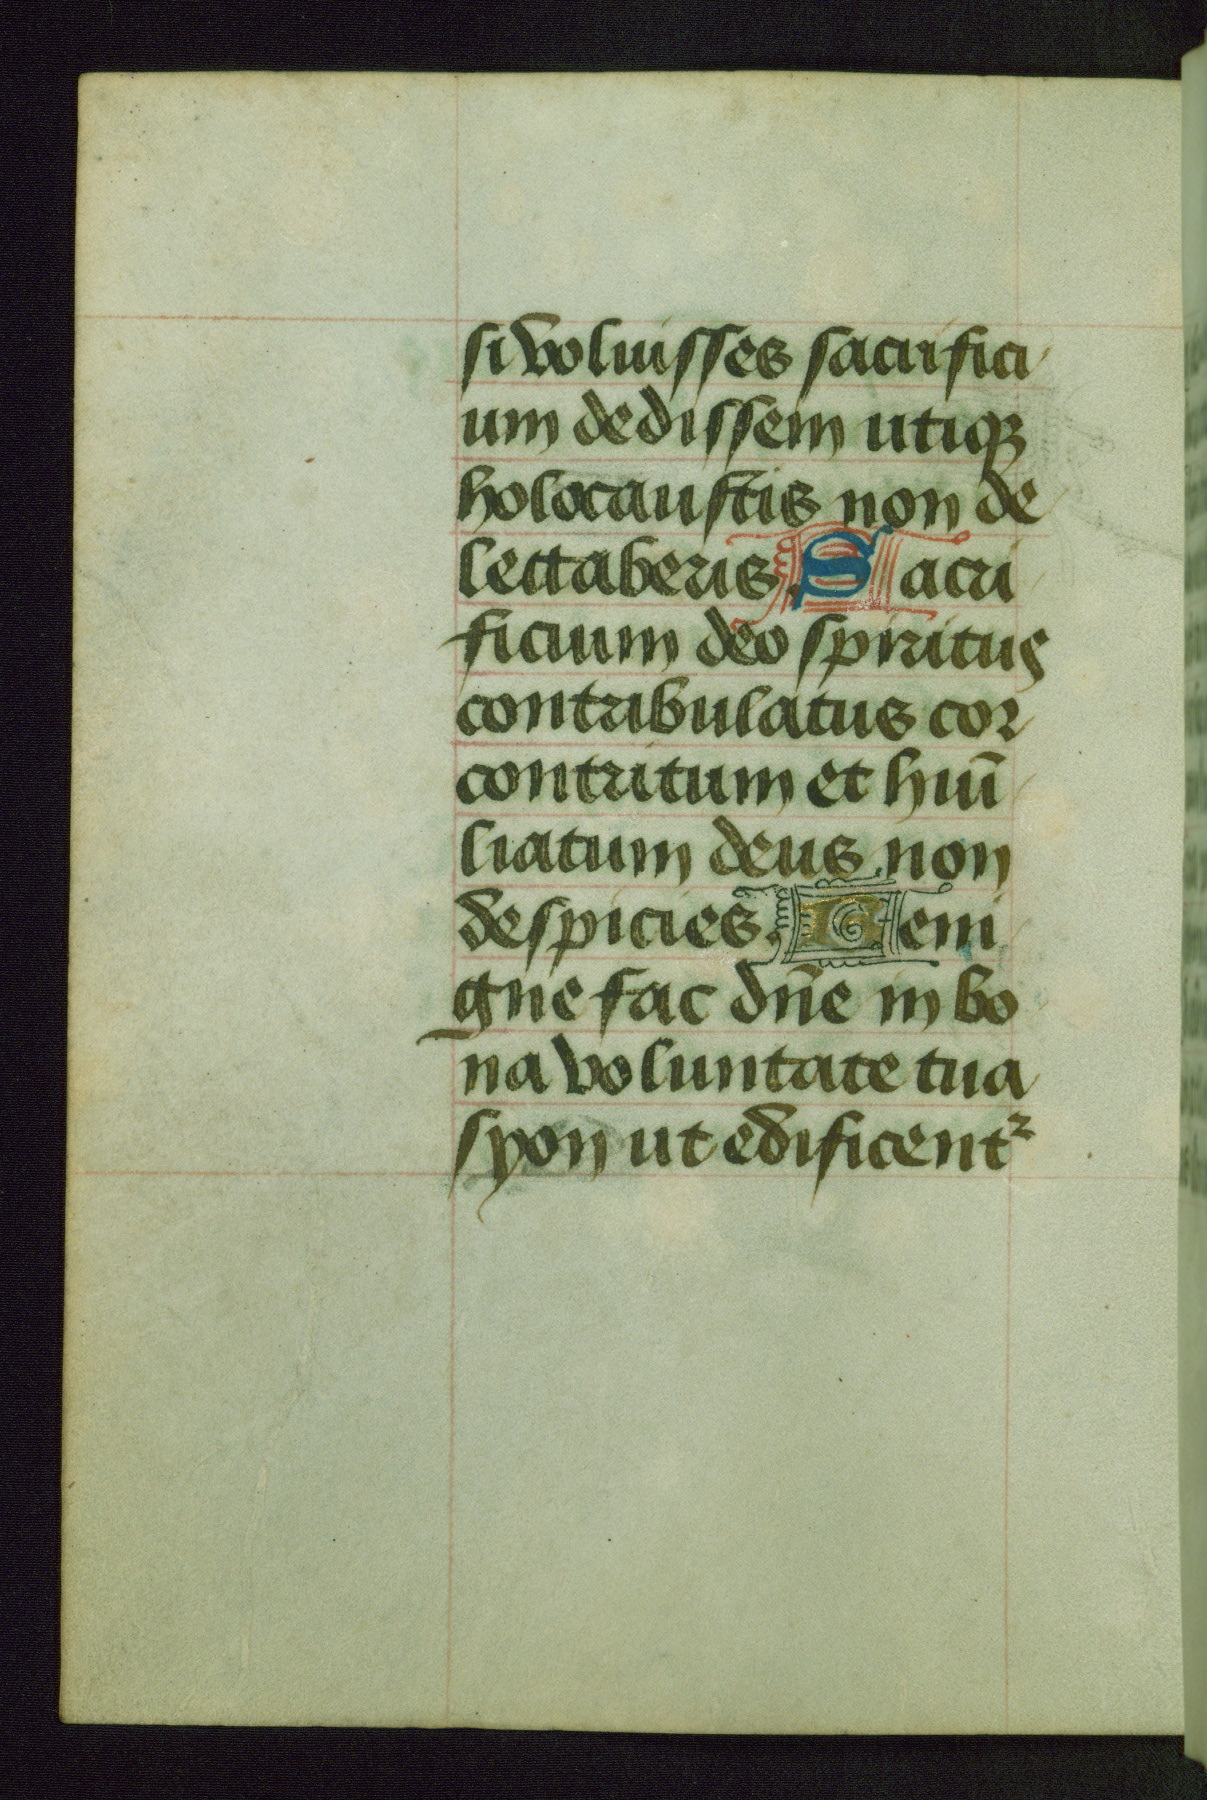 si voluisses sacrifici
um dedissem utiqꝫ
holocaustis non de
lectaberis. Sacri
ficium deo spiritus
contribulatus cor
contritum et hūi
liatum deus non
despicies. Beni
gne fac dn̄e in bo
na voluntate tua
syon ut edificent᷑